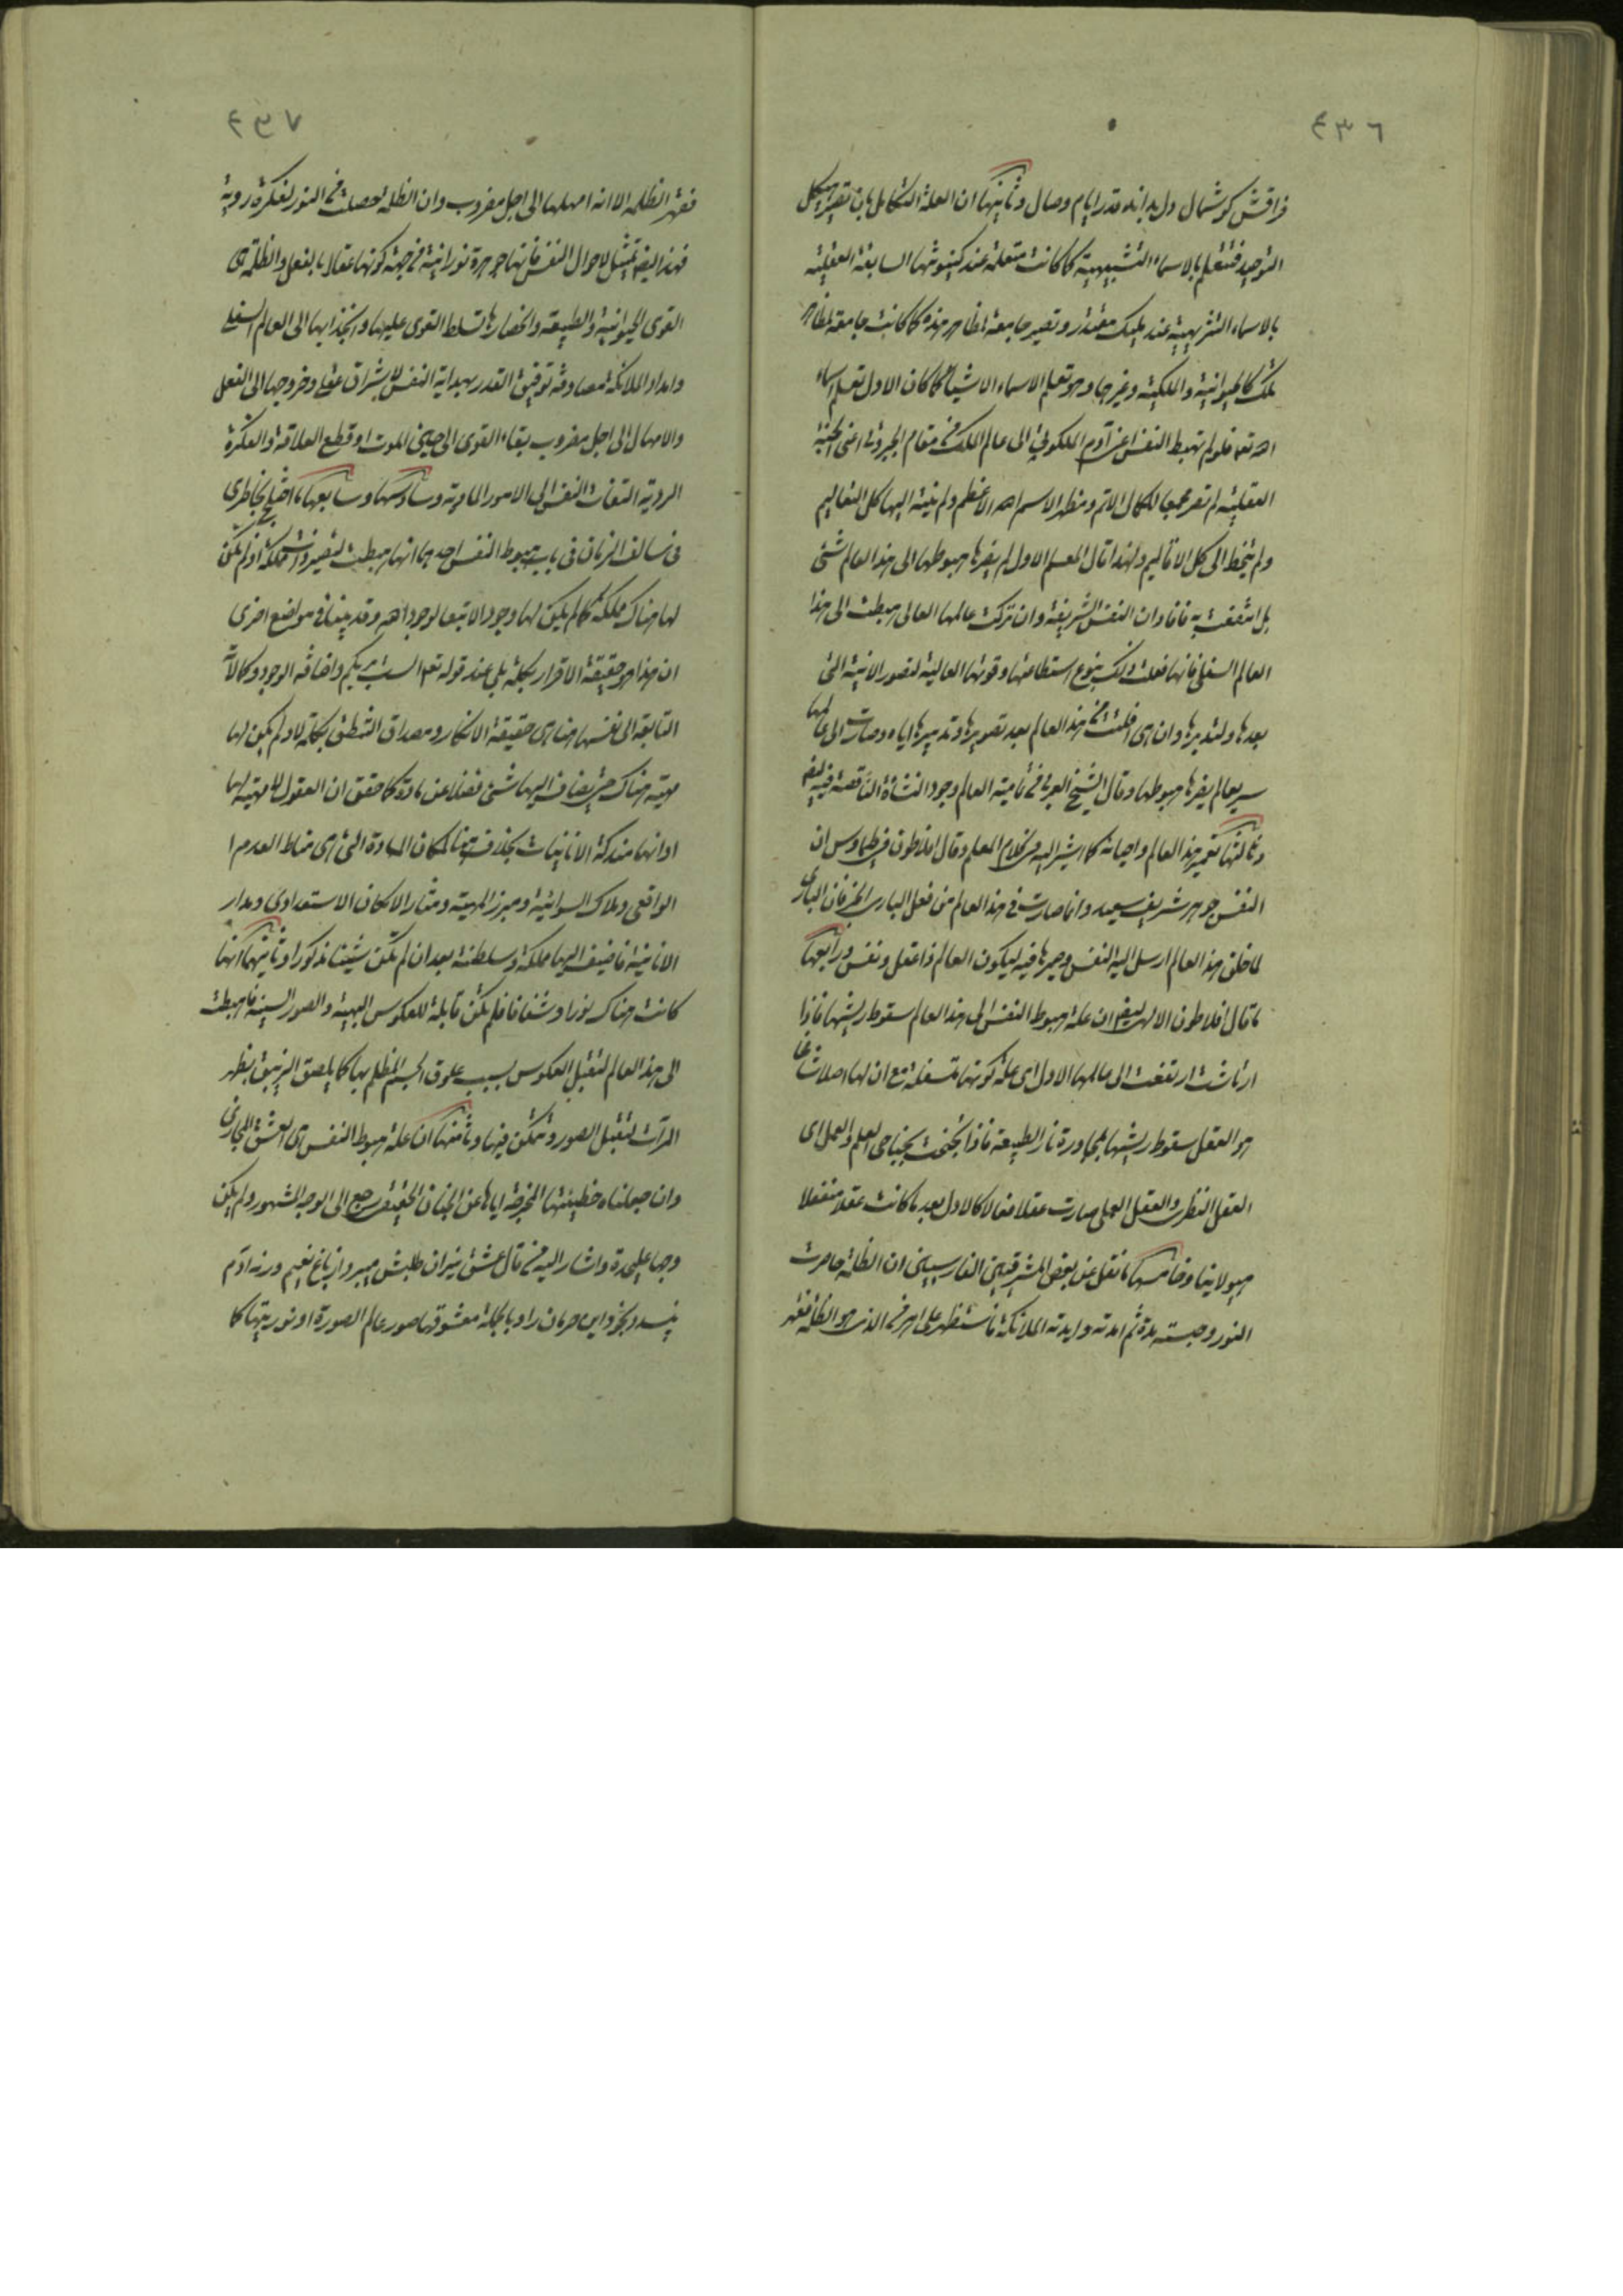 ٤٣٦
فراقش گوشمال دل بداند قدر ایام وصال وثانيتها ان العلة التكامل بان تصير هيكل
التوحيد فتتعلم بالاسماء التشبيهية كما كانت متعلمة عند كينونتها السابقة العقلية
بالاسماء التنزيهية عند مليك مقتدر وتصير جامعة لمظاهر هذه كما كانت جامعة لمظاهر
تلك كالحيوانية والملكية وغيرها وهو تعلم الاسماء الاشياء كما كان الاول تعلم اسماء
الله تعالى فلو لم تهبط النفس اعنى آدم الملكوتى الى عالم الملك فى مقام الجبروتى اعنى الجنة
العقلية لم تصر مجمعا للكمال الاتم ومظهر الاسم الله الاعظم ولم ينته اليها كل التعاليم
ولم يتخط الى كل الاقاليم ولهذا قال المعلم الاول لم يضرها هبوطها الى هذا العالم شئ
بل انتفعت به فافاد ان النفس الشريفة وان تركت عالمها العالى وهبطت الى هذا
العالم السفلى فانها فعلت ذلك بنوع استطاعتها وقوتها العالية لتصور الانية التى
بعدها ولتدبرها وان هى افلتت من هذا العالم بعد تصويرها وتدبيرها اياه وصارت الى عالمها
سريعا لم يضرها هبوطها وقال الشيخ العربى فى تمامية العالم وجود النشأة الناقصة فيه ايضا
وثالثتها تعمير هذا العالم واحيائه كما اشير اليه فى كلام المعلم وقال افلاطون فى طيماوس ان
النفس جوهر شريف سعيد وانما صارت فى هذا العالم من فعل البارى الخير فان البارى
لما خلق هذا العالم ارسل اليه النفس وصيرها فيه ليكون العالم ذا عقل ونفس ورابعتها
ما قال افلاطون الالهى ايضا ان علة هبوط النفس الى هذا العالم سقوط ريشها فاذا
ارتاشت ارتفعت الى عالمها الاول اى علة كونها متسفلة مع ان لها اصلا شامخا
هو العقل سقوط ريشها بمجاورة نار الطبيعة فاذا تجنحت بجناحى العلم والعمل اى
العقل النظرى والعقل العملى صارت عقلا فعالا كالاول بعد ما كانت عقلا منفعلا
هيولانيا وخامستها ما نقل عن بعض المشرقيين الفارسيين ان الظلمة حاصرت
النور وحبسته مدة ثم امدته وايدته الملائكة فاستظهر على اهرمن الذى هو الظلمة فقهر
٤٣٧
فقهر الظلمة الا انه امهلها الى اجل مضروب وان الظلمة حصلت من النور لفكرة رديئة
فهذا ايضا تمثيل لاحوال النفس فانها جوهرة نورانية من جهة كونها عقلا بالفعل والظلمة هى
القوى الحيوانية والطبيعة وانحصارها تسلط القوى عليها وانجذابها الى العالم السفلى
وامداد الملائكة مصادفة توفيق القدر بهداية النفس لاشراق عقلى وخروجها الى الفعل
والامهال الى اجل مضروب بقاء القوى الى حين الموت او قطع العلاقة والفكرة
الردية التفات النفس الى الامور المادية وسادستها وسابعتها ما اختلج بخاطرى
فى سالف الزمان فى باب هبوط النفس احديهما انها هبطت لتصير ذات مملكة اذ لم تكن
لها هناك مملكة كما لم يكن لها وجود الا تبعا لوجود الله وقد بينا فى مواضع اخرى
ان هذا هو حقيقة الاقرار بكلمة بلى عند قوله تعالى الست بربكم واضافة الوجود وكمالاته
التابعة الى نفسها هنا هى حقيقة الانكار ومصداق التنطق بكلمة لا ولم يكن لها
مهية هناك حتى يضاف اليها شئ فضلا عن مادة كما حقق ان العقول لا مهية لها
او انها مندكة الانانيات بخلافه هنا لمكان المادة التى هى مناط العدم
الواقعى وملاك السوائية ومبرز المهية ومثار الامكان الاستعدادى ومدار
الانانية فاضيف اليها مملكة وسلطنة بعد ان لم تكن شيئا مذكورا وثانيتهما انها
كانت هناك نورا وشفافا فلم تكن قابلة للعكوس البهية والصور السنية فاهبطت
الى هذا العالم لتقبل العكوس بسبب علوق الجسم المظلم بها كما يلصق الزيبق بظهر
المرآت لتقبل الصور وتتمكن فيها وثامنتها ان علة هبوط النفس هى العشق المجازى
وان جعلناه خطيئتها المخرجة اياها عن الجنان الحقيقى رجع الى الوجه المشهور ولم يكن
وجها عليحدة واشار اليه من قال عشق نيران طلبش ميبرد از باغ نعيم ورنه آدم
بخود اين حرمان را وبالجملة معشوقها صور عالم الصورة او نوريتها كما